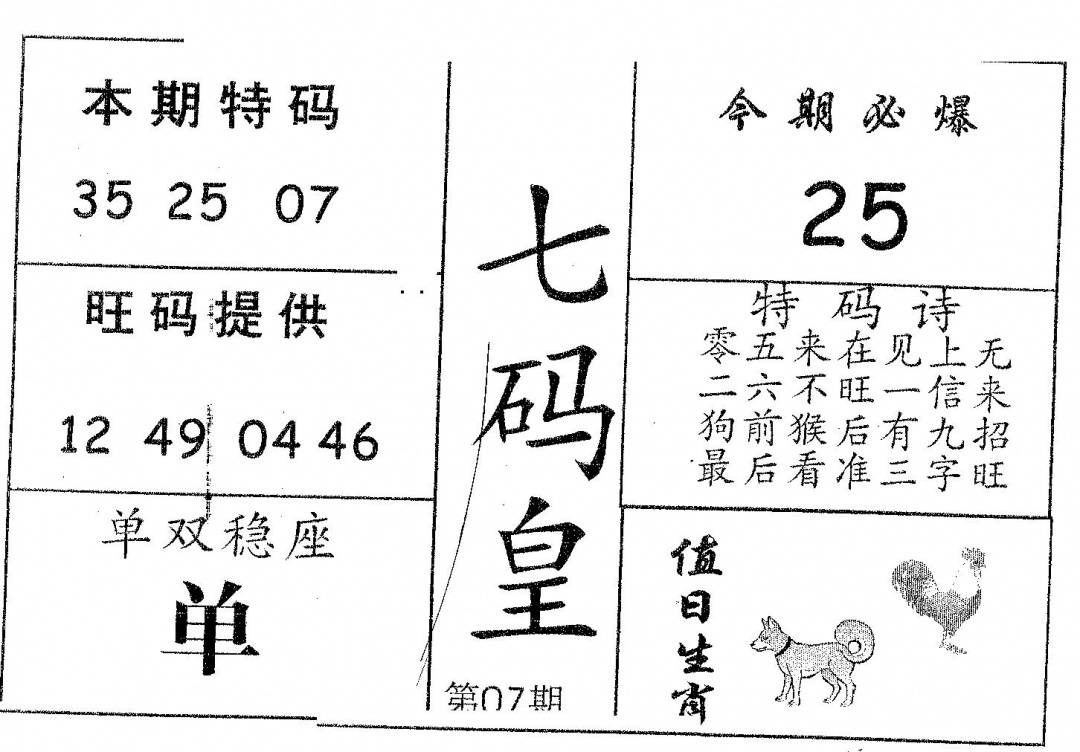 本期特码
35 25 07
旺码提供
12 49 04 46
单双稳座
单
七码皇
第07期
今期必爆
25
特码诗
零五来在见上无
二六不旺一信来
狗前猴后有九招
最后看准三字旺
值日生肖